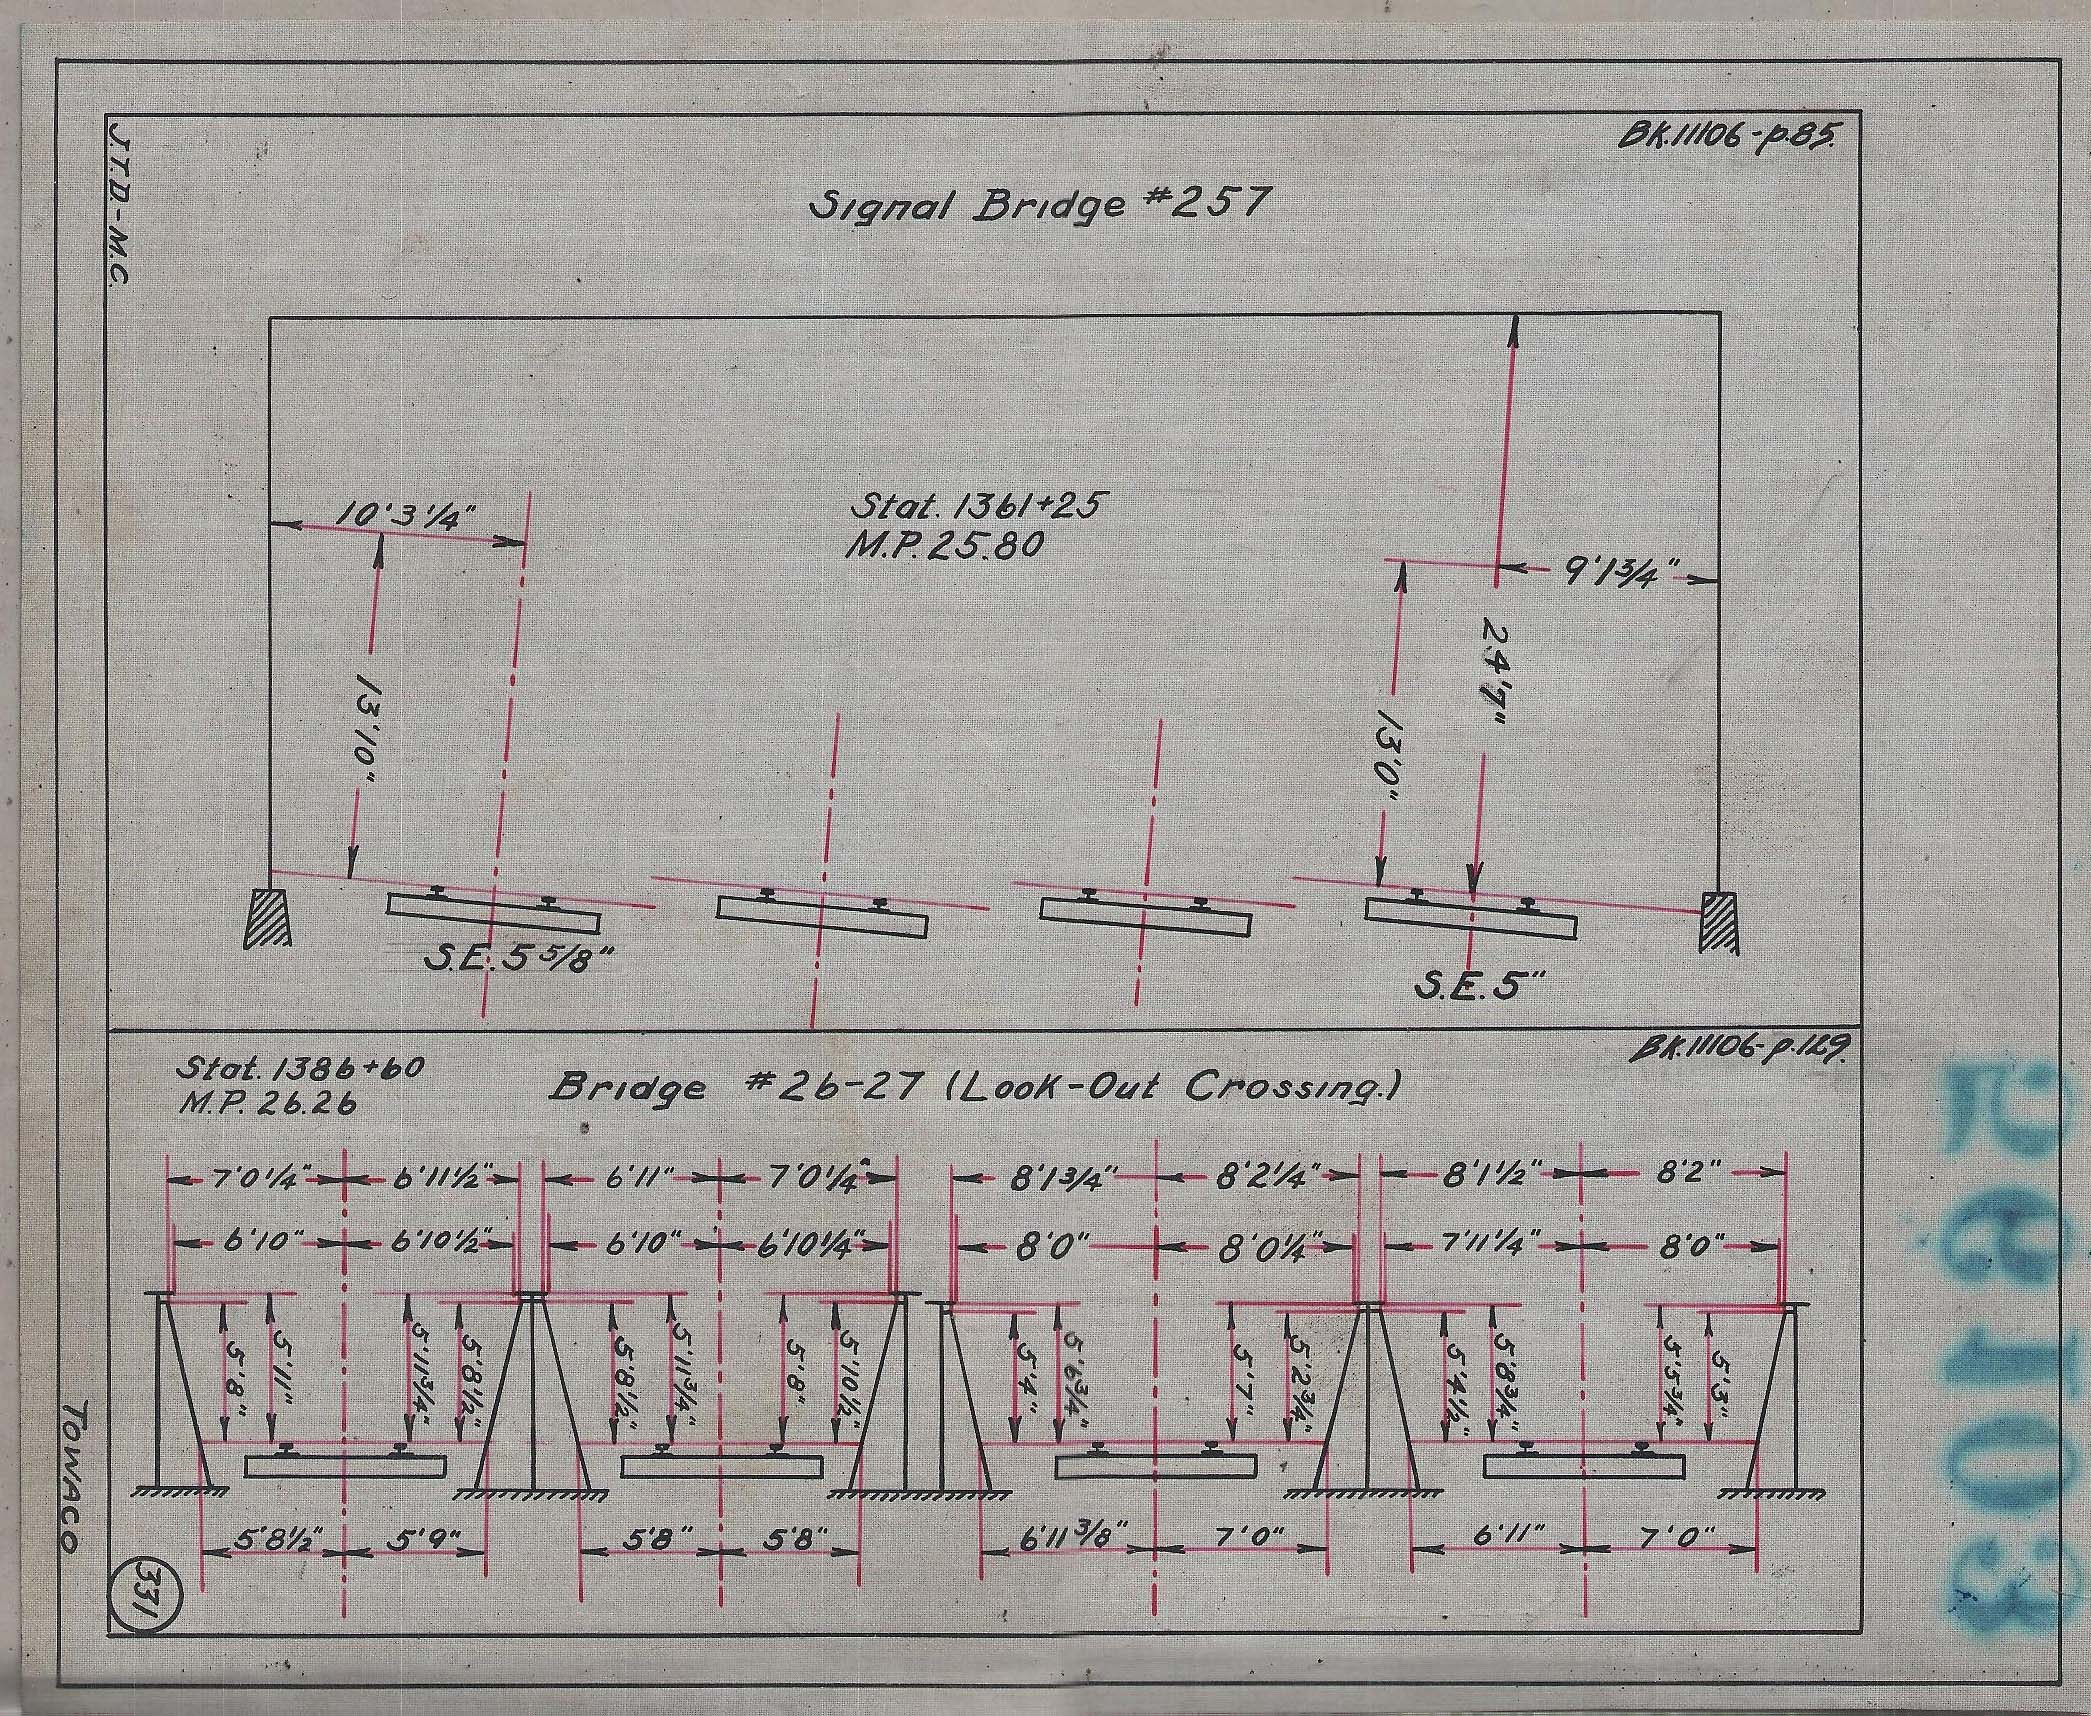 BK.11106-p.85.
J.T.D.-M.C.
Signal Bridge #257
Stat. 1361+25
M.P. 25.80
10'3 1/4"
9'1 3/4"
13'10"
24'7"
13'0"
S.E. 5 5/8"
S.E. 5"
BK.11106-p.129.
Stat. 1386+60
M.P. 26.26
Bridge #26-27 (Look-Out Crossing.)
7'0 1/4" 6'11 1/2" 6'11" 7'0 1/4" 8'1 3/4" 8'2 1/4" 8'1 1/2" 8'2"
6'10" 6'10 1/2" 6'10" 6'10 1/4" 8'0" 8'0 1/4" 7'11 1/4" 8'0"
5'8" 5'11" 5'11 3/4" 5'8 1/2" 5'8 1/2" 5'11 3/4" 5'8" 5'10 1/2" 5'4" 5'6 3/4" 5'7" 5'2 3/4" 5'4 1/2" 5'8 3/4" 5'5 3/4" 5'3"
5'8 1/2" 5'9" 5'8" 5'8" 6'11 3/8" 7'0" 6'11" 7'0"
TOWACO
331
59103